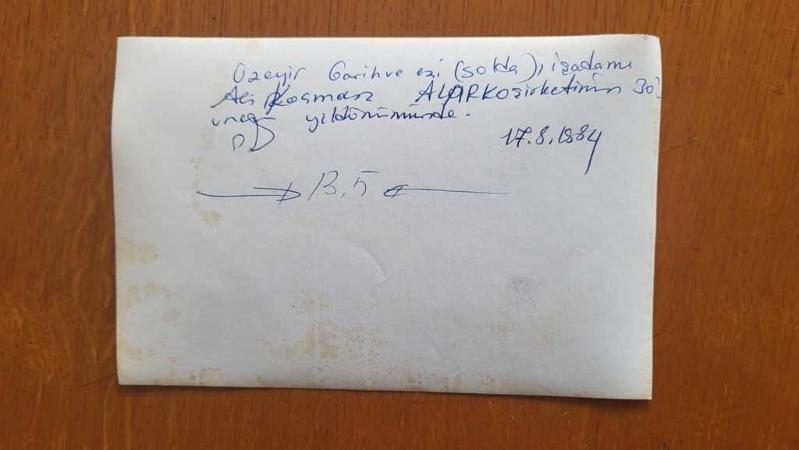 Üzeyir Garih ve eşi (solda), işadamı
Ali Kosman ALARKO şirketinin 30'
uncu yıldönümünde.
17.8.1984
13,5